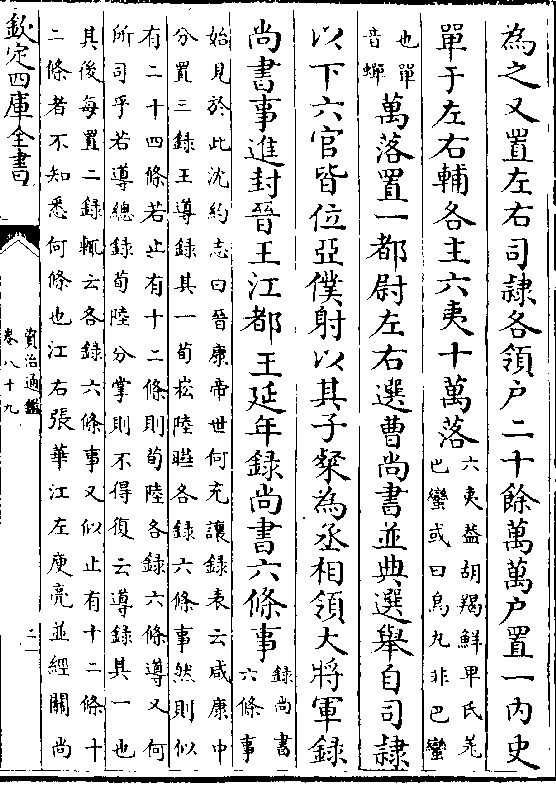 為之又置左右司隷各領户二十餘萬萬户置一內史
單于左右輔各主六夷十萬落六夷葢胡羯鮮卑氐羌
巴蠻或曰烏丸非巴蠻
也單
音蟬萬落置一都尉左右選曹尚書並典選舉自司隷
以下六官皆位亞僕射以其子粲為丞相領大將軍録
尚書事進封晉王江都王延年録尚書六條事録尚書
六條事
始見於此沈約志曰晉康帝世何充讓録表云咸康中
分置三録王導録其一荀崧陸曄各録六條事然則似
有二十四條若止有十二條則荀陸各録六條導又何
所司乎若導總録荀陸分掌則不得復云導録其一也
其後每置二録輒云各録六條事又似止有十二條十
二條者不知悉何條也江右張華江左庾亮並經關尚
欽定四庫全書
資治通鑑
卷八十九
二